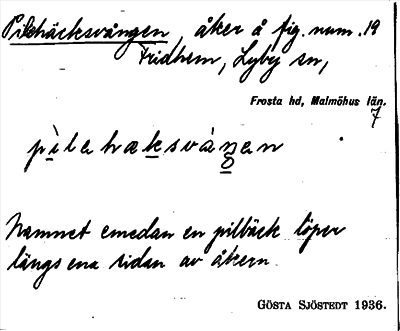 Pilehäcksvången, åker å fig. num. 19
Fridhem, Lyby sn,
Frosta hd, Malmöhus län.
7
Namnet emedan en pilbäck löper
längs ena sidan av åkern.
GÖSTA SJÖSTEDT 1936.